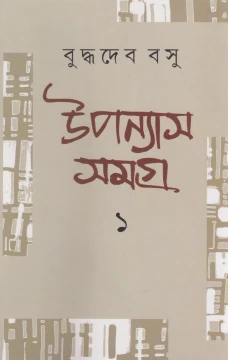 বুদ্ধদেব বসু
উপন্যাস
সমগ্র
১